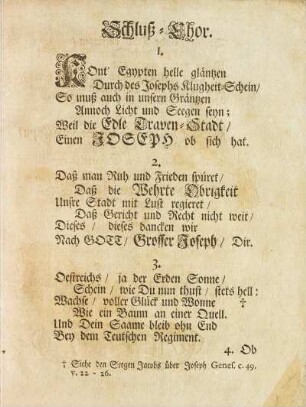 Schluß-Chor.
1.
KOnt' Egypten helle gläntzen
Durch des Josephs Klugheit-Schein/
So muß auch in unsern Gräntzen
Annoch Licht und Seegen seyn;
Weil die Edle Traven-Stadt/
Einen JOSEPH ob sich hat.
2.
Daß man Ruh und Frieden spüret/
Daß die Wehrte Obrigkeit
Unsre Stadt mit Lust regieret/
Daß Gericht und Recht nicht weit/
Dieses/ dieses dancken wir
Nach GOTT/ Grosser Joseph/ Dir.
3.
Oestreichs/ ja der Erden Sonne/
Schein/ wie Du nun thust/ stets hell:
Wachse/ voller Glück und Wonne †
Wie ein Baum an einer Quell.
Und Dein Saame bleib ohn End
Bey dem Teutschen Regiment.
4. Ob
† Siehe den Seegen Jacobs über Joseph Genes. c. 49.
v. 22 - 26.